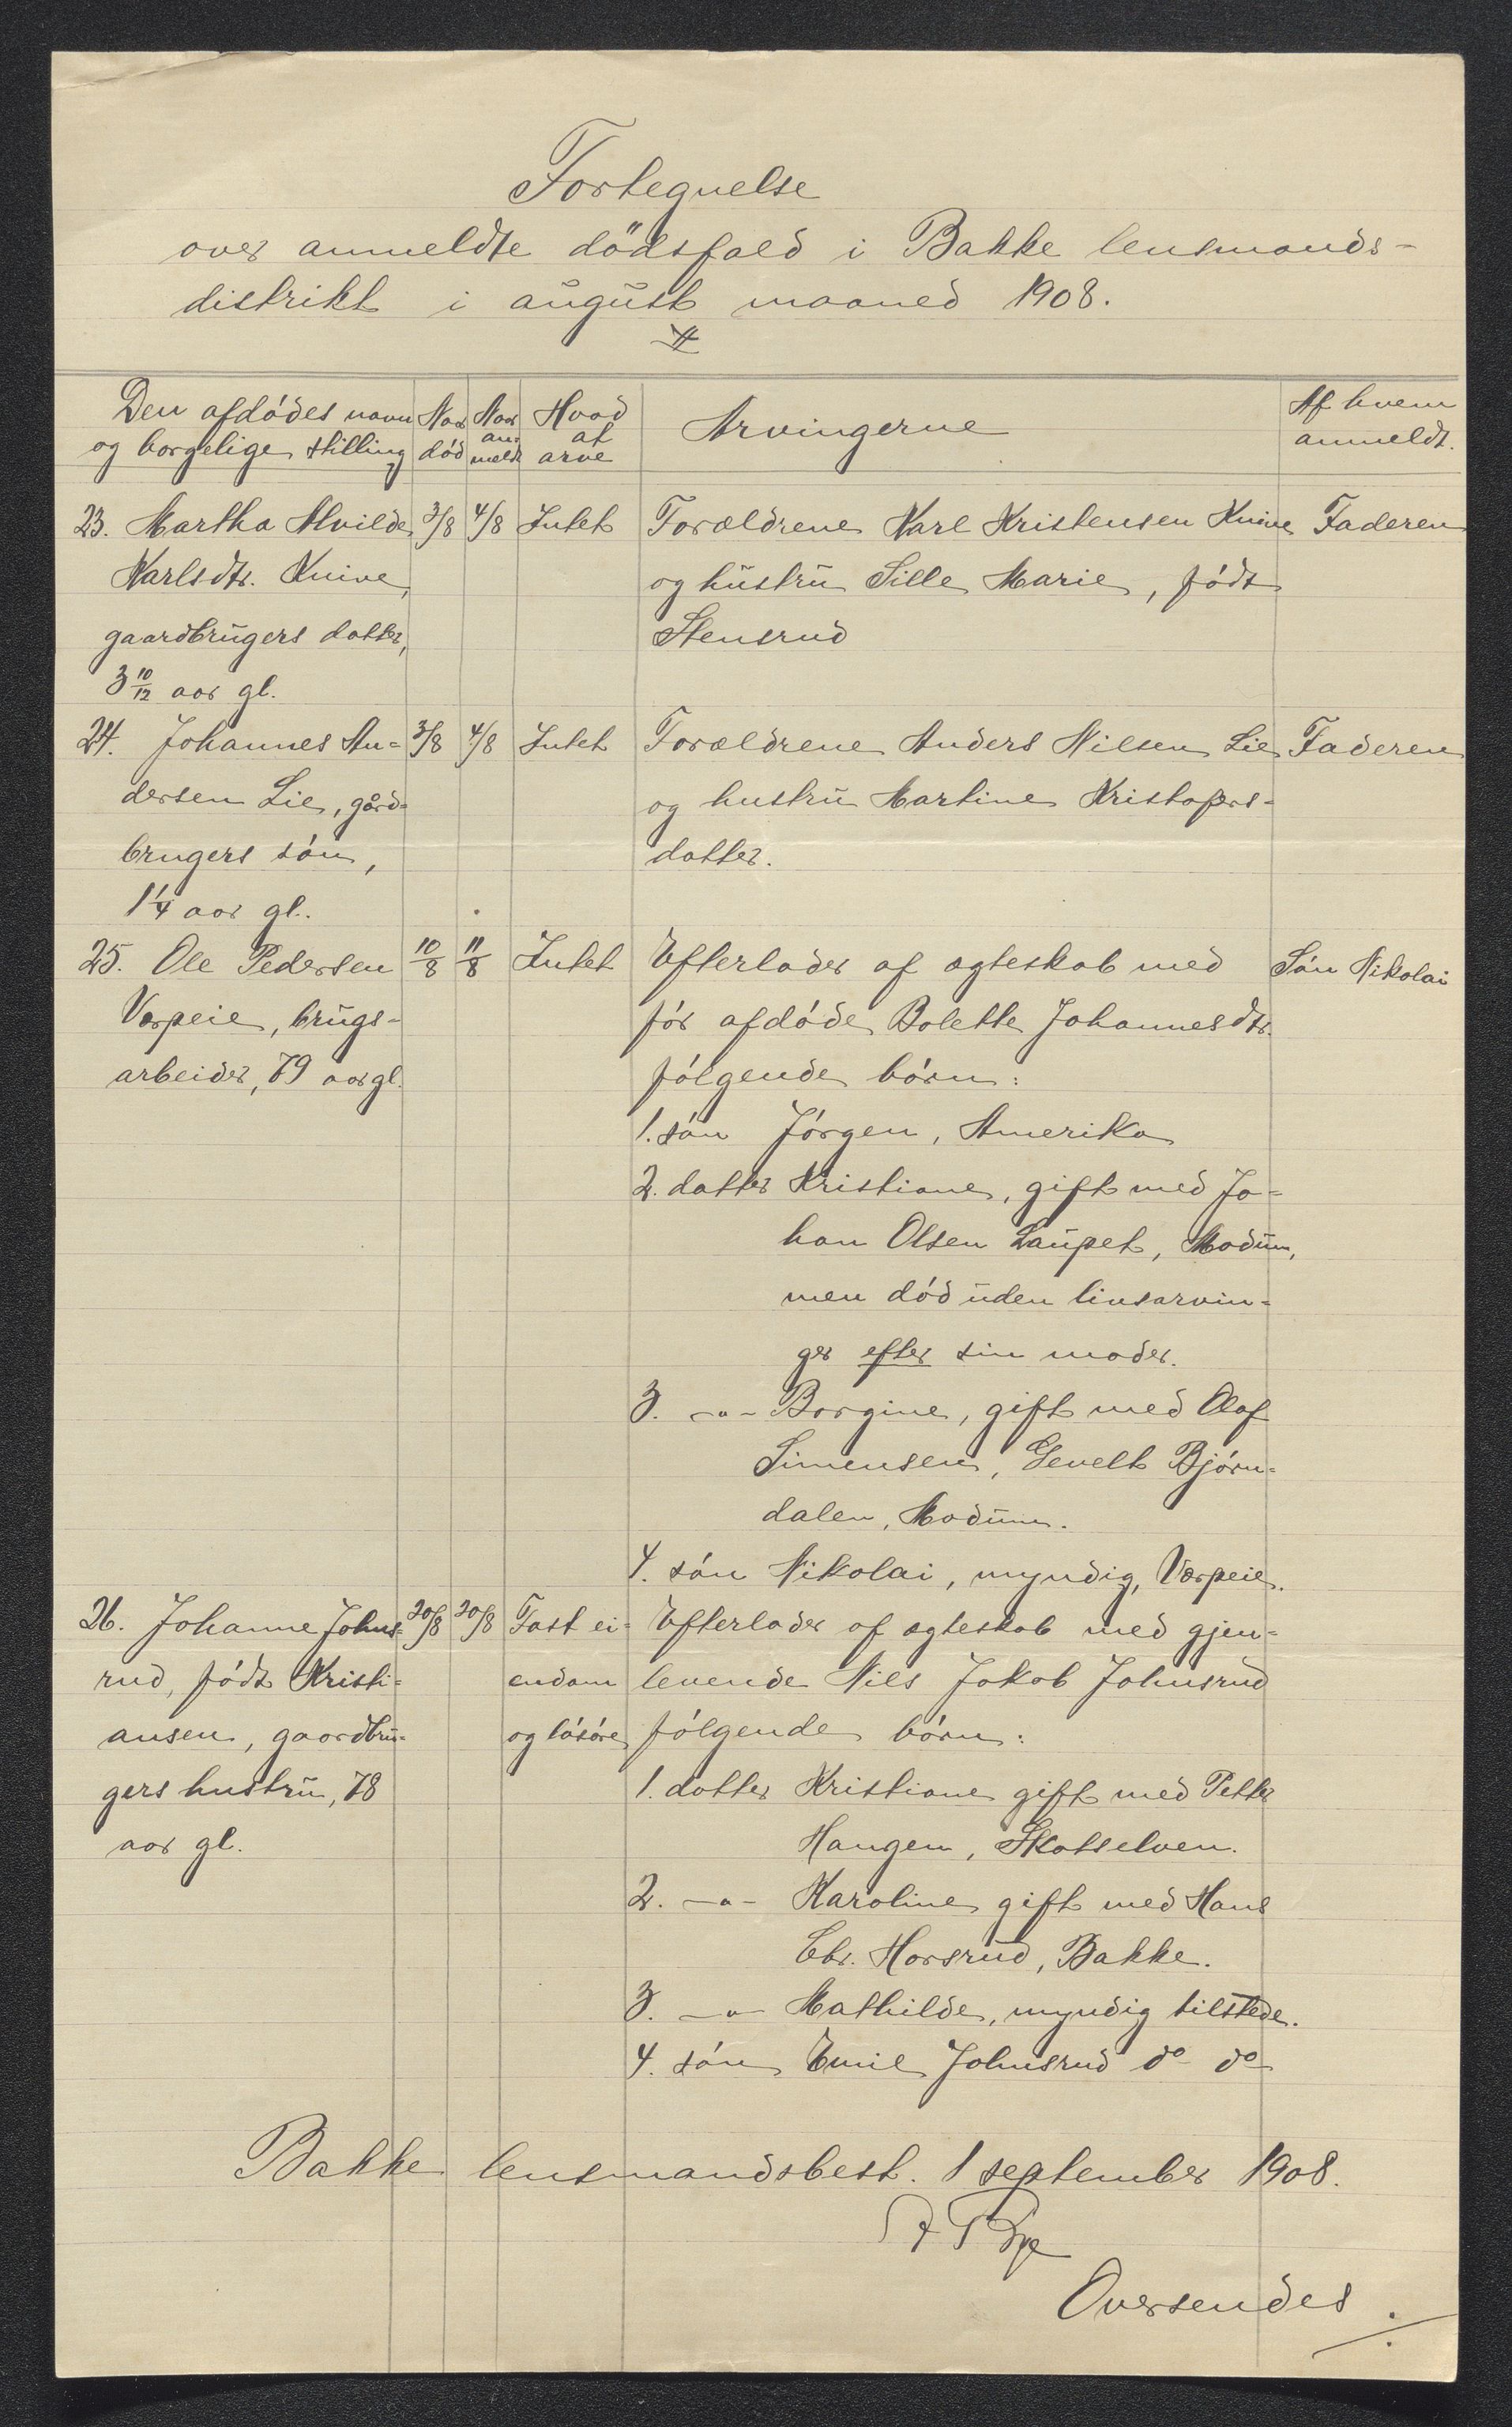 Fortegnelse
over anmeldte dödsfald i Bakke lensmands-
distrikt i august maaned 1908.
Den afdödes navn
og borgelige stilling
Naar
död
Naar
an-
meldt
Hvad
at
arve
Arvingerne
Af hvem
anmeldt.
23. Martha Alvilde 3/8 4/8 Intet Forældrene Karl Kristensen Knive Faderen
Karlsdtr. Knive, og hustru Sille Marie, födt
gaardbrugers datter, Stensrud
3 10/12 aar gl.
24. Johannes An- 3/8 4/8 Intet Forældrene Anders Nilsen Lie Faderen
dersen Lie, gård- og hustru Martine Kristofers-
brugers sön, datter.
1 1/4 aar gl.
25. Ole Pedersen 10/8 11/8 Intet Efterlader af ægteskab med Sön Nikolai
Varpeie, brugs- för afdöde Bolette Johannesdtr.
arbeider, 79 aar gl. fölgende börn:
1. sön Jörgen, Amerika
2. datter Kristiane, gift med Jo-
han Olsen Laupet, Modum,
men död uden livsarvin-
ger efter sin moder.
3. -"- Borgine, gift med Olaf
Simensen, Gevelt Björn-
dalen, Modum.
4. sön Nikolai, myndig, Varpeie.
26. Johanne Johns- 20/8 20/8 Fast ei- Efterlader af ægteskab med gjen-
rud, födt Kristi- endom levende Nils Jakob Johnsrud
ansen, gaardbru- og lösöre fölgende börn:
gers hustru, 78 1. datter Kristiane gift med Petter
aar gl. Haugen, Skotselven.
2. -"- Karoline gift med Hans
Chr. Horsrud, Bakke.
3. -"- Mathilde, myndig tilstede.
4. sön Emil Johnsrud do do
Bakke lensmandsbest. 1 september 1908.
Oversendes